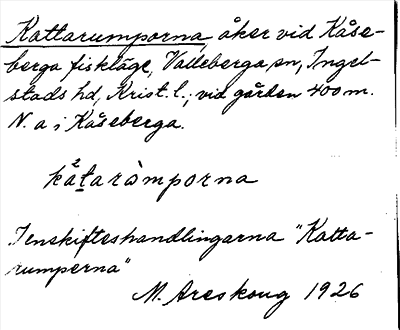 Kattarumporna, åker vid Kåse-
berga fiskläge, Valleberga sn, Ingel-
stads hd, Krist. l.; vid gården 400 m.
N. a i Kåseberga.
kåtaràmporna
I enskifteshandlingarna "Katta-
rumperna"
M. Areskoug 1926